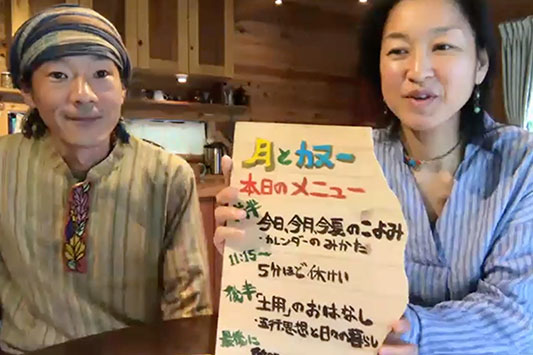 月とカヌー
本日のメニュー
今日、今月、今夏のこよみ
・カレンダーのみかた
11:15〜
5分ほど休けい
後半
「土用」のおはなし
・五行思想と日々の暮らし
最後に